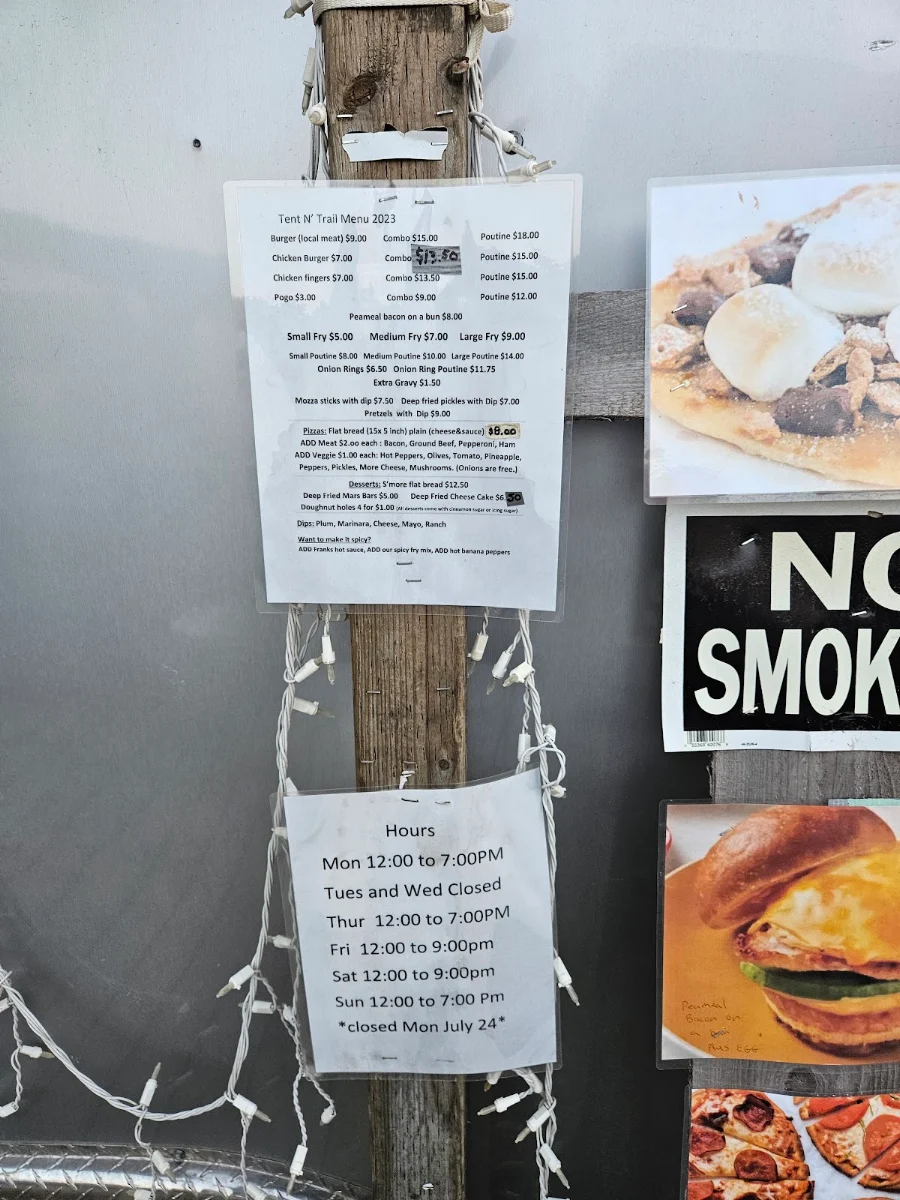 Tent N' Trail Menu 2023
Burger (local meat) $9.00 Combo $15.00 Poutine $18.00
Chicken Burger $7.00 Combo $13.50 Poutine $15.00
Chicken fingers $7.00 Combo $13.50 Poutine $15.00
Pogo $3.00 Combo $9.00 Poutine $12.00
Peameal bacon on a bun $8.00
Small Fry $5.00 Medium Fry $7.00 Large Fry $9.00
Small Poutine $8.00 Medium Poutine $10.00 Large Poutine $14.00
Onion Rings $6.50 Onion Ring Poutine $11.75
Extra Gravy $1.50
Mozza sticks with dip $7.50 Deep fried pickles with Dip $7.00
Pretzels with Dip $9.00
Pizzas: Flat bread (15x 5 inch) plain (cheese&sauce) $8.00
ADD Meat $2.oo each : Bacon, Ground Beef, Pepperoni, Ham
ADD Veggie $1.00 each: Hot Peppers, Olives, Tomato, Pineapple,
Peppers, Pickles, More Cheese, Mushrooms. (Onions are free.)
Desserts: S'more flat bread $12.50
Deep Fried Mars Bars $5.00 Deep Fried Cheese Cake $6.50
Doughnut holes 4 for $1.00 (All desserts come with cinnamon sugar or icing sugar)
Dips: Plum, Marinara, Cheese, Mayo, Ranch
Want to make it spicy?
ADD Franks hot sauce, ADD our spicy fry mix, ADD hot banana peppers
NO
SMOK
Hours
Mon 12:00 to 7:00PM
Tues and Wed Closed
Thur 12:00 to 7:00PM
Fri 12:00 to 9:00pm
Sat 12:00 to 9:00pm
Sun 12:00 to 7:00 Pm
*closed Mon July 24*
Peameal
Bacon on
a
Plus EGG